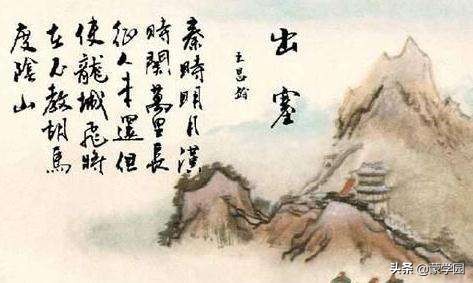 出塞
王昌齡
秦時明月漢
時關萬里長
征人未還但
使龍城飛將
在不教胡馬
度陰山
头条 @蒙学园